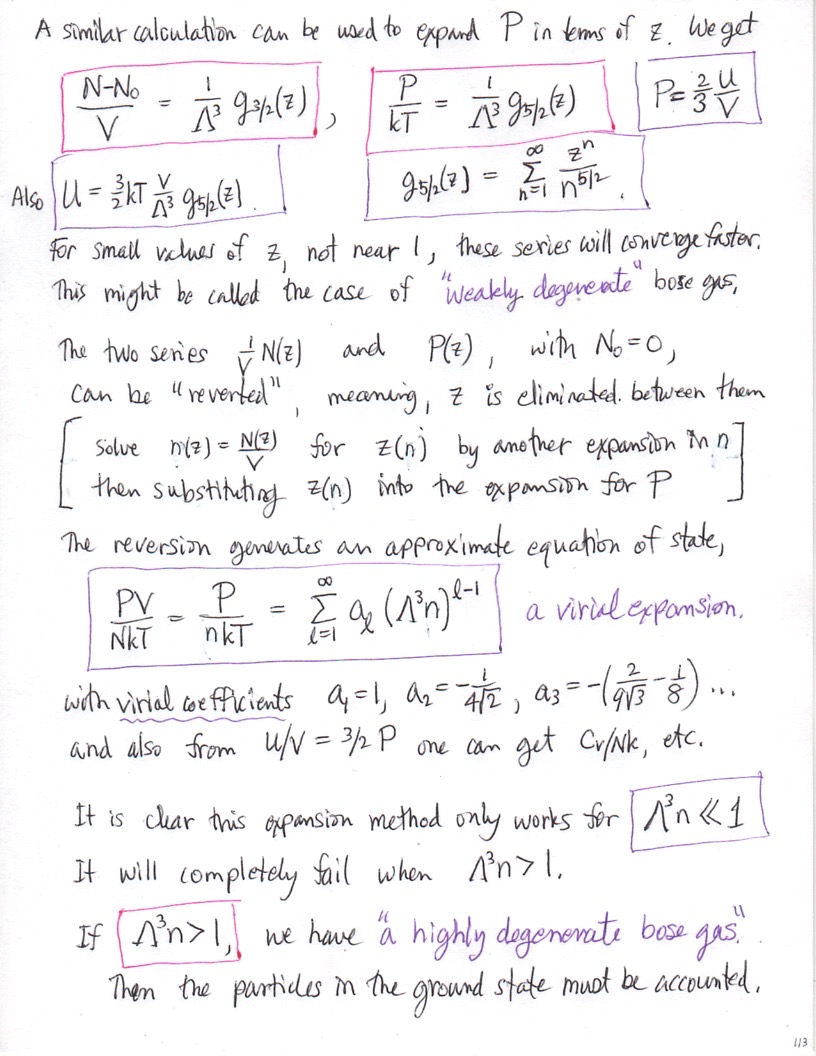 A similar calculation can be used to expand P in terms of z. We get
(N-N₀)/V = 1/Λ³ g₃/₂(z) , P/kT = 1/Λ³ g₅/₂(z) P = 2/3 U/V
Also U = 3/2 kT V/Λ³ g₅/₂(z). g₅/₂(z) = ∑_{n=1}^{∞} zⁿ/n^{5/2}.
For small values of z, not near 1, these series will converge faster.
This might be called the case of "weakly degenerate" bose gas,
The two series 1/V N(z) and P(z), with N₀=0,
can be "reverted", meaning, z is eliminated. between them
[ solve n(z) = N(z)/V for z(n) by another expansion in n
then substituting z(n) into the expansion for P ]
The reversion generates an approximate equation of state,
PV/NkT = P/nkT = ∑_{l=1}^{∞} a_l (Λ³n)^{l-1} a virial expansion.
with virial coefficients a₁=1, a₂ = -1/4√2, a₃ = -(2/9√3 - 1/8) ...
and also from U/V = 3/2 P one can get Cv/Nk, etc.
It is clear this expansion method only works for Λ³n ≪ 1
It will completely fail when Λ³n > 1.
If Λ³n > 1, we have "a highly degenerate bose gas."
Then the particles in the ground state must be accounted.
113